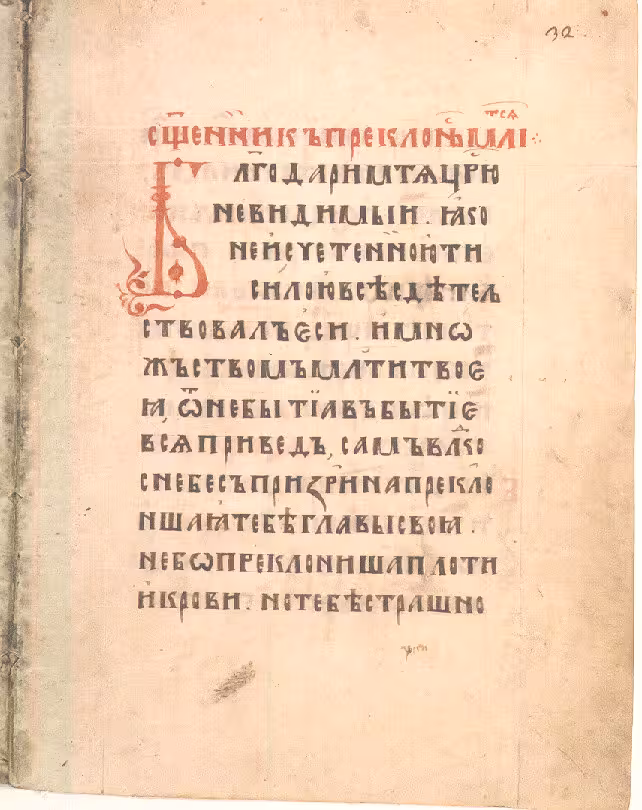 32
сщ҃енникъпреклонь́мл҃ітсѧ
Бл҃годаримтѧцр҃ю
невидимыи. ꙗжо
неисчетенноюти
силоювсѣсдѣтел
ствовалъєси. имнѡ
жъствомъмлⷭ҇титвоє
ꙗ, ѿнебытїавъбытїє
всѧприведъ, самъвлⷣко
снебесъпризринапрекло
ншаꙗтебѣглавысвоꙗ.
небѡпреклонишаплоти
икрови. нотебѣстрашно